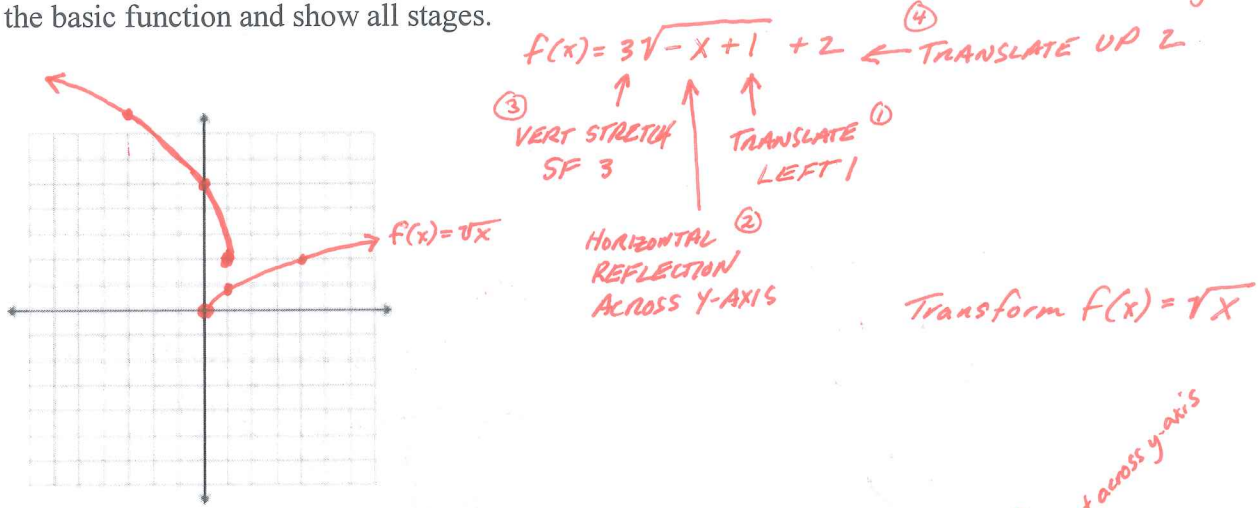 the basic function and show all stages.
f(x) = 3√-x+1 + 2 ← TRANSLATE UP 2
④
③
VERT STRETCH
SF 3
TRANSLATE ①
LEFT 1
② 
HORIZONTAL
REFLECTION
ACROSS Y-AXIS
f(x)=√x
Transform f(x) = √x
across y-axis